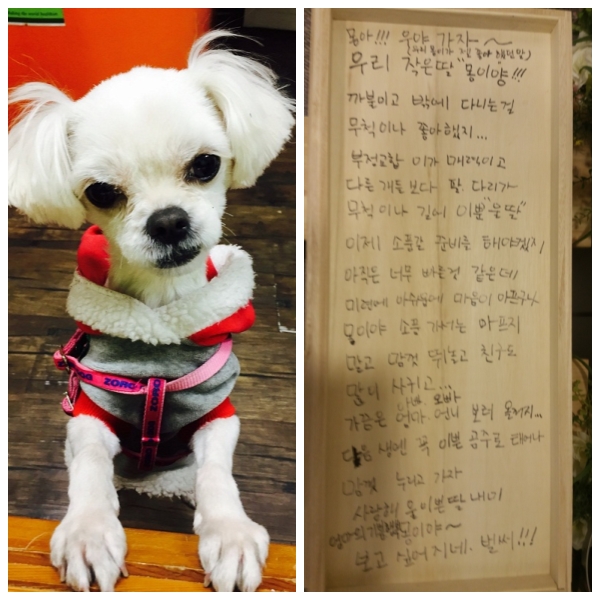 ZORO
몽아!!! 우야 가자~
(우리 몽이가 젤 좋아했던말)
우리 작은딸 "몽이양!!!
까불이고 밖에 다니는걸
무척이나 좋아했지...
부정교합 이가 매력이고
다른 개들보다 팔, 다리가
무척이나 길어 이쁜 "울딸"
이제 소풍갈 준비를 해야겠지
아직은 너무 빠른것 같은데
미련에 아쉬움에 마음이 아프구나
몽이야 소풍 가서는 아프지
말고 맘껏 뛰놀고 친구도
많이 사귀고...
아빠 오빠
가끔은 엄마 언니 보러 올거지...
다음 생엔 꼭 이쁜 공주로 태어나
맘껏 누리고 가자
사랑해 울이쁜딸내미
엄마의 껌딱지 몽이야~
보고 싶어지네. 벌써!!!